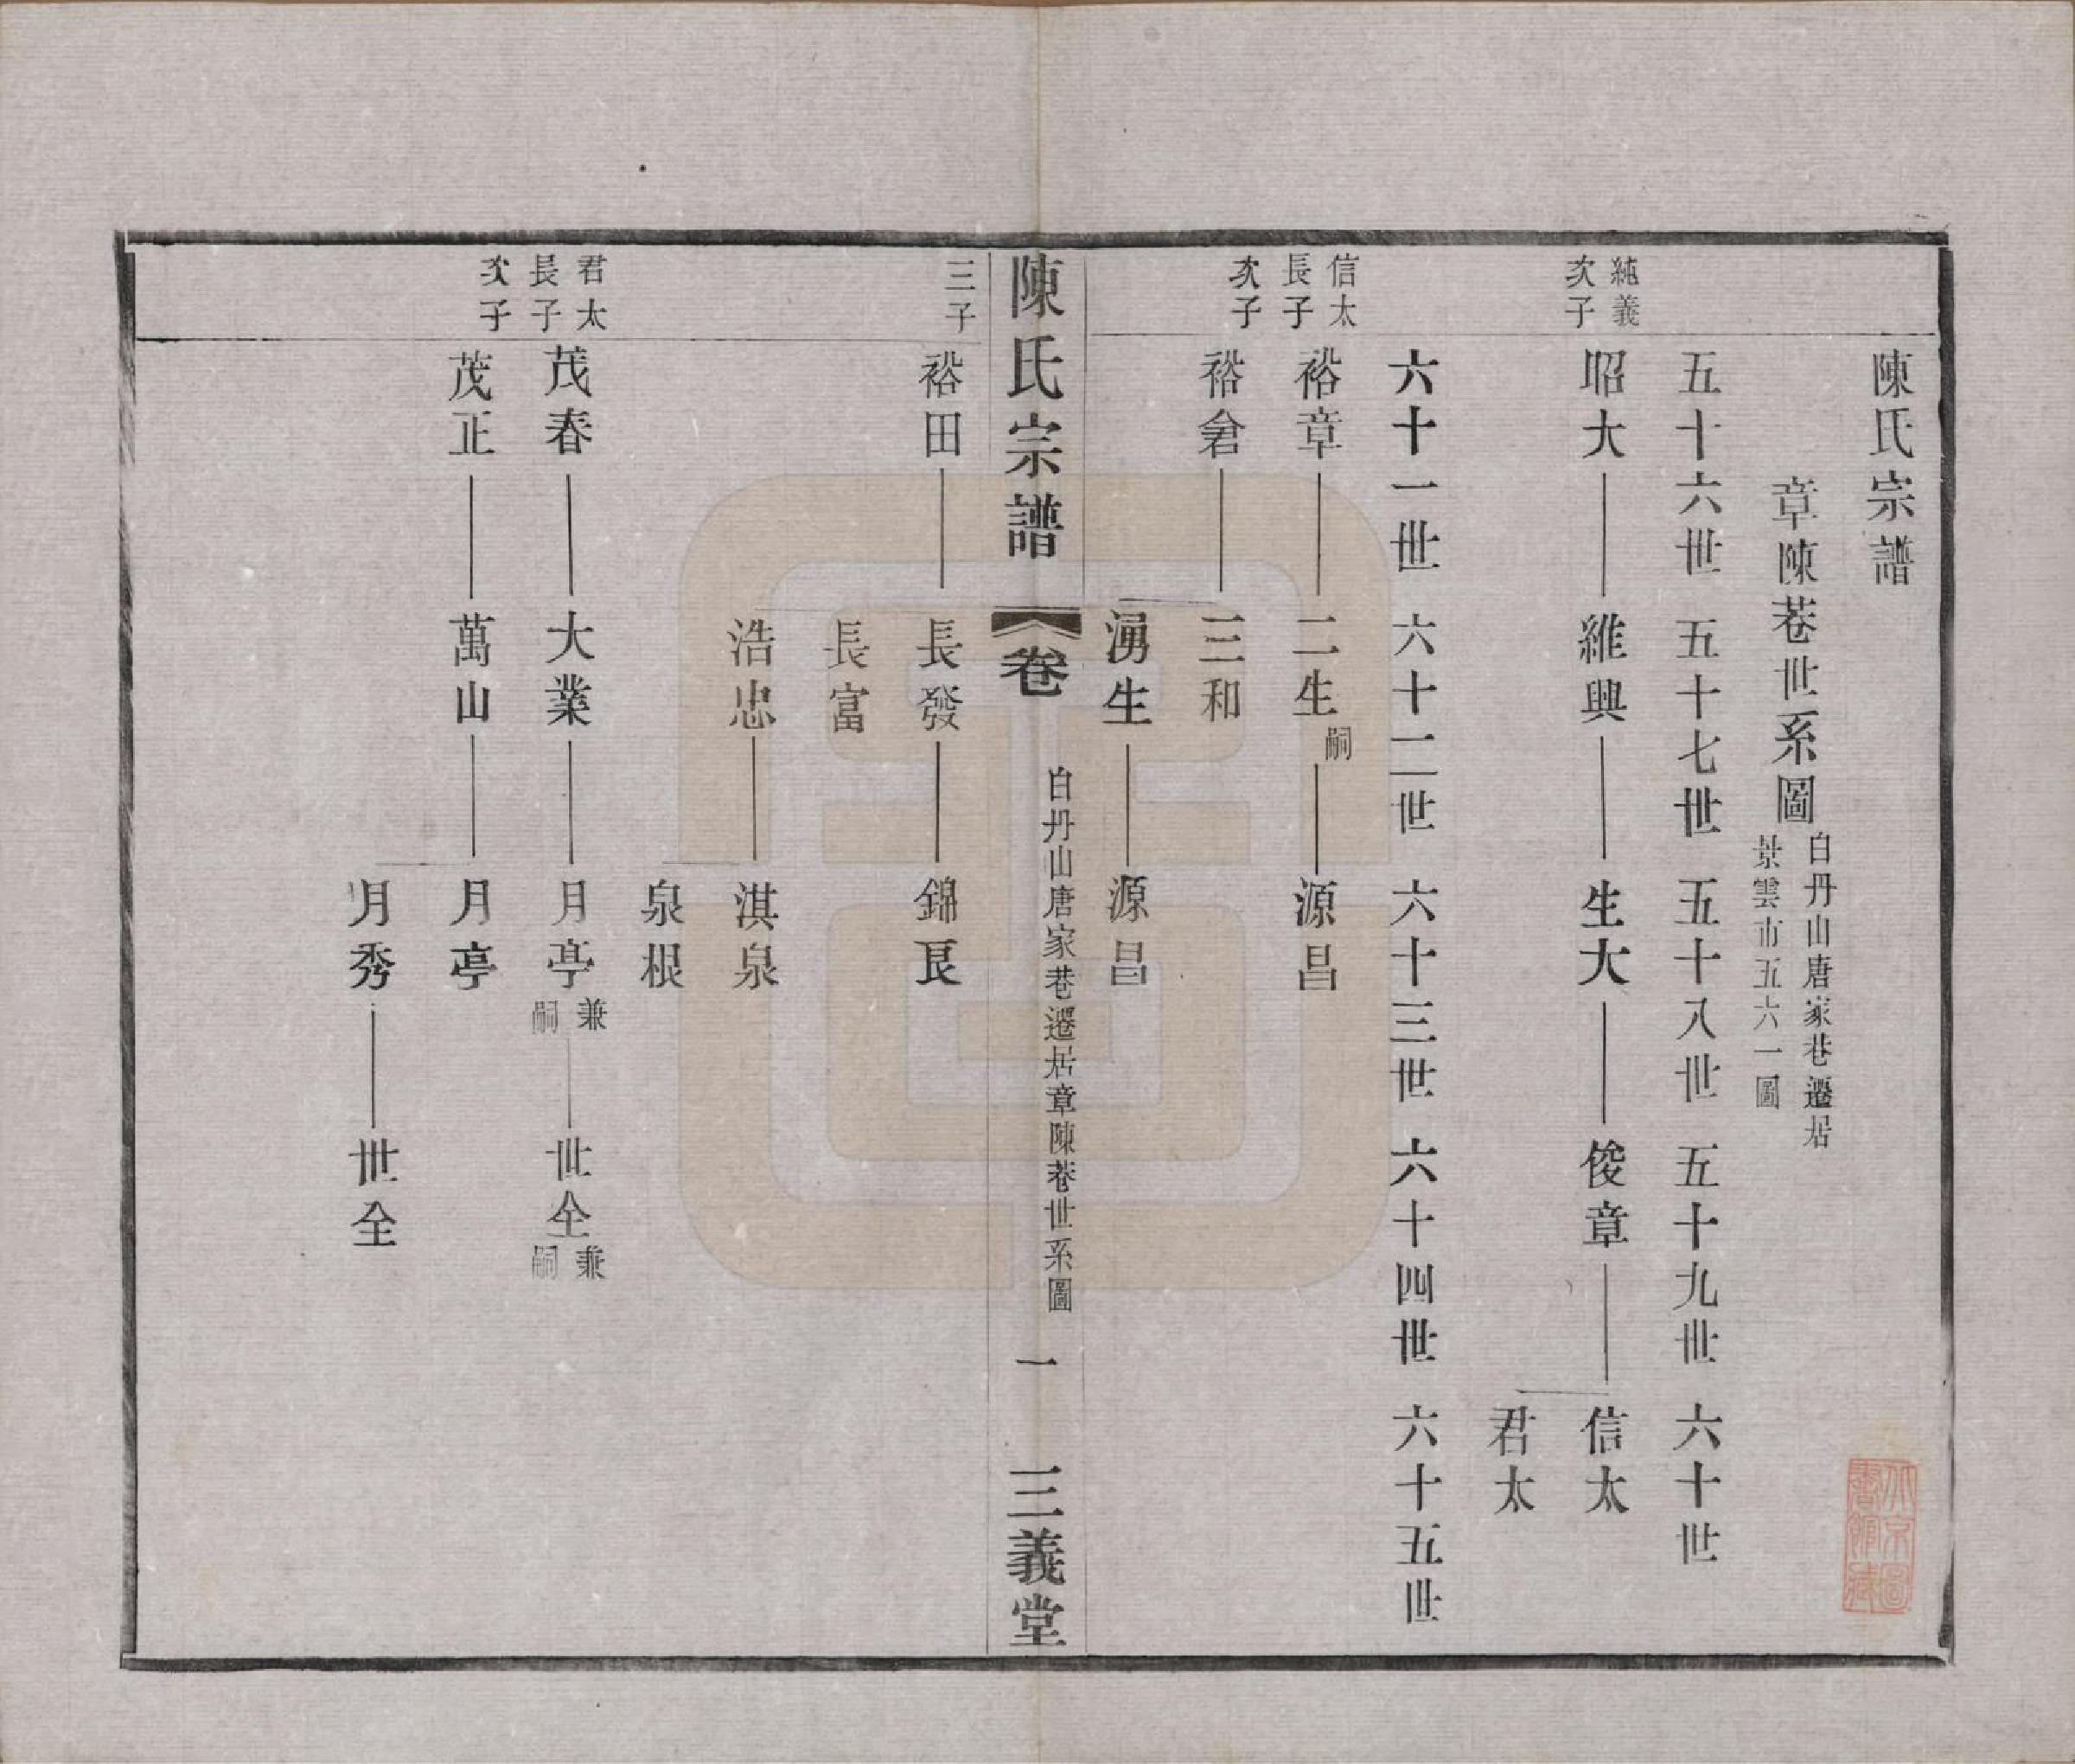 陳氏宗譜
章陳巷世系圖
白丹山唐家巷遷居
景雲市五六一圖
五十六世 五十七世 五十八世 五十九世 六十世
純義
次子
昭大 維興 生大 俊章 信太
君太
六十一世 六十二世 六十三世 六十四世 六十五世
信太
長子
裕章 二生 嗣 源昌
次子
裕倉 三和
湧生 源昌
陳氏宗譜 卷 白丹山唐家巷遷居章陳巷世系圖 一 三義堂
三子
裕田 長發 錦艮
長富
浩忠 淇泉
泉根
君太
長子
茂春 大業 月亭 兼嗣 世全 兼嗣
次子
茂正 萬山 月亭
月秀 世全
北京圖
書館藏